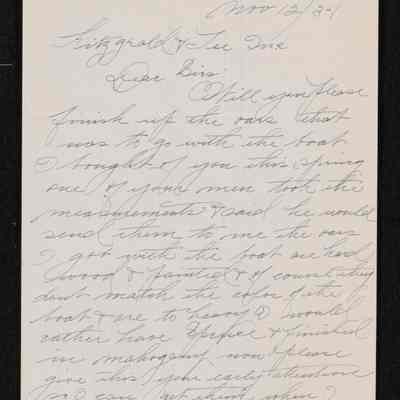 Nov 12/24
Fitzgrald & Lee Inc
Dear Sirs
Will you please
finish up the oars that
was to go with the boat
I bought of you this spring
one of your men took the
measurements & said he would
send them to me the oars
I got with the boat are hard
wood & painted & of course they
dont match the color of the
boat & are to heavy I would
rather have Spruce & finished
in mahogany now & please
give this your early attention
so I can get them when I